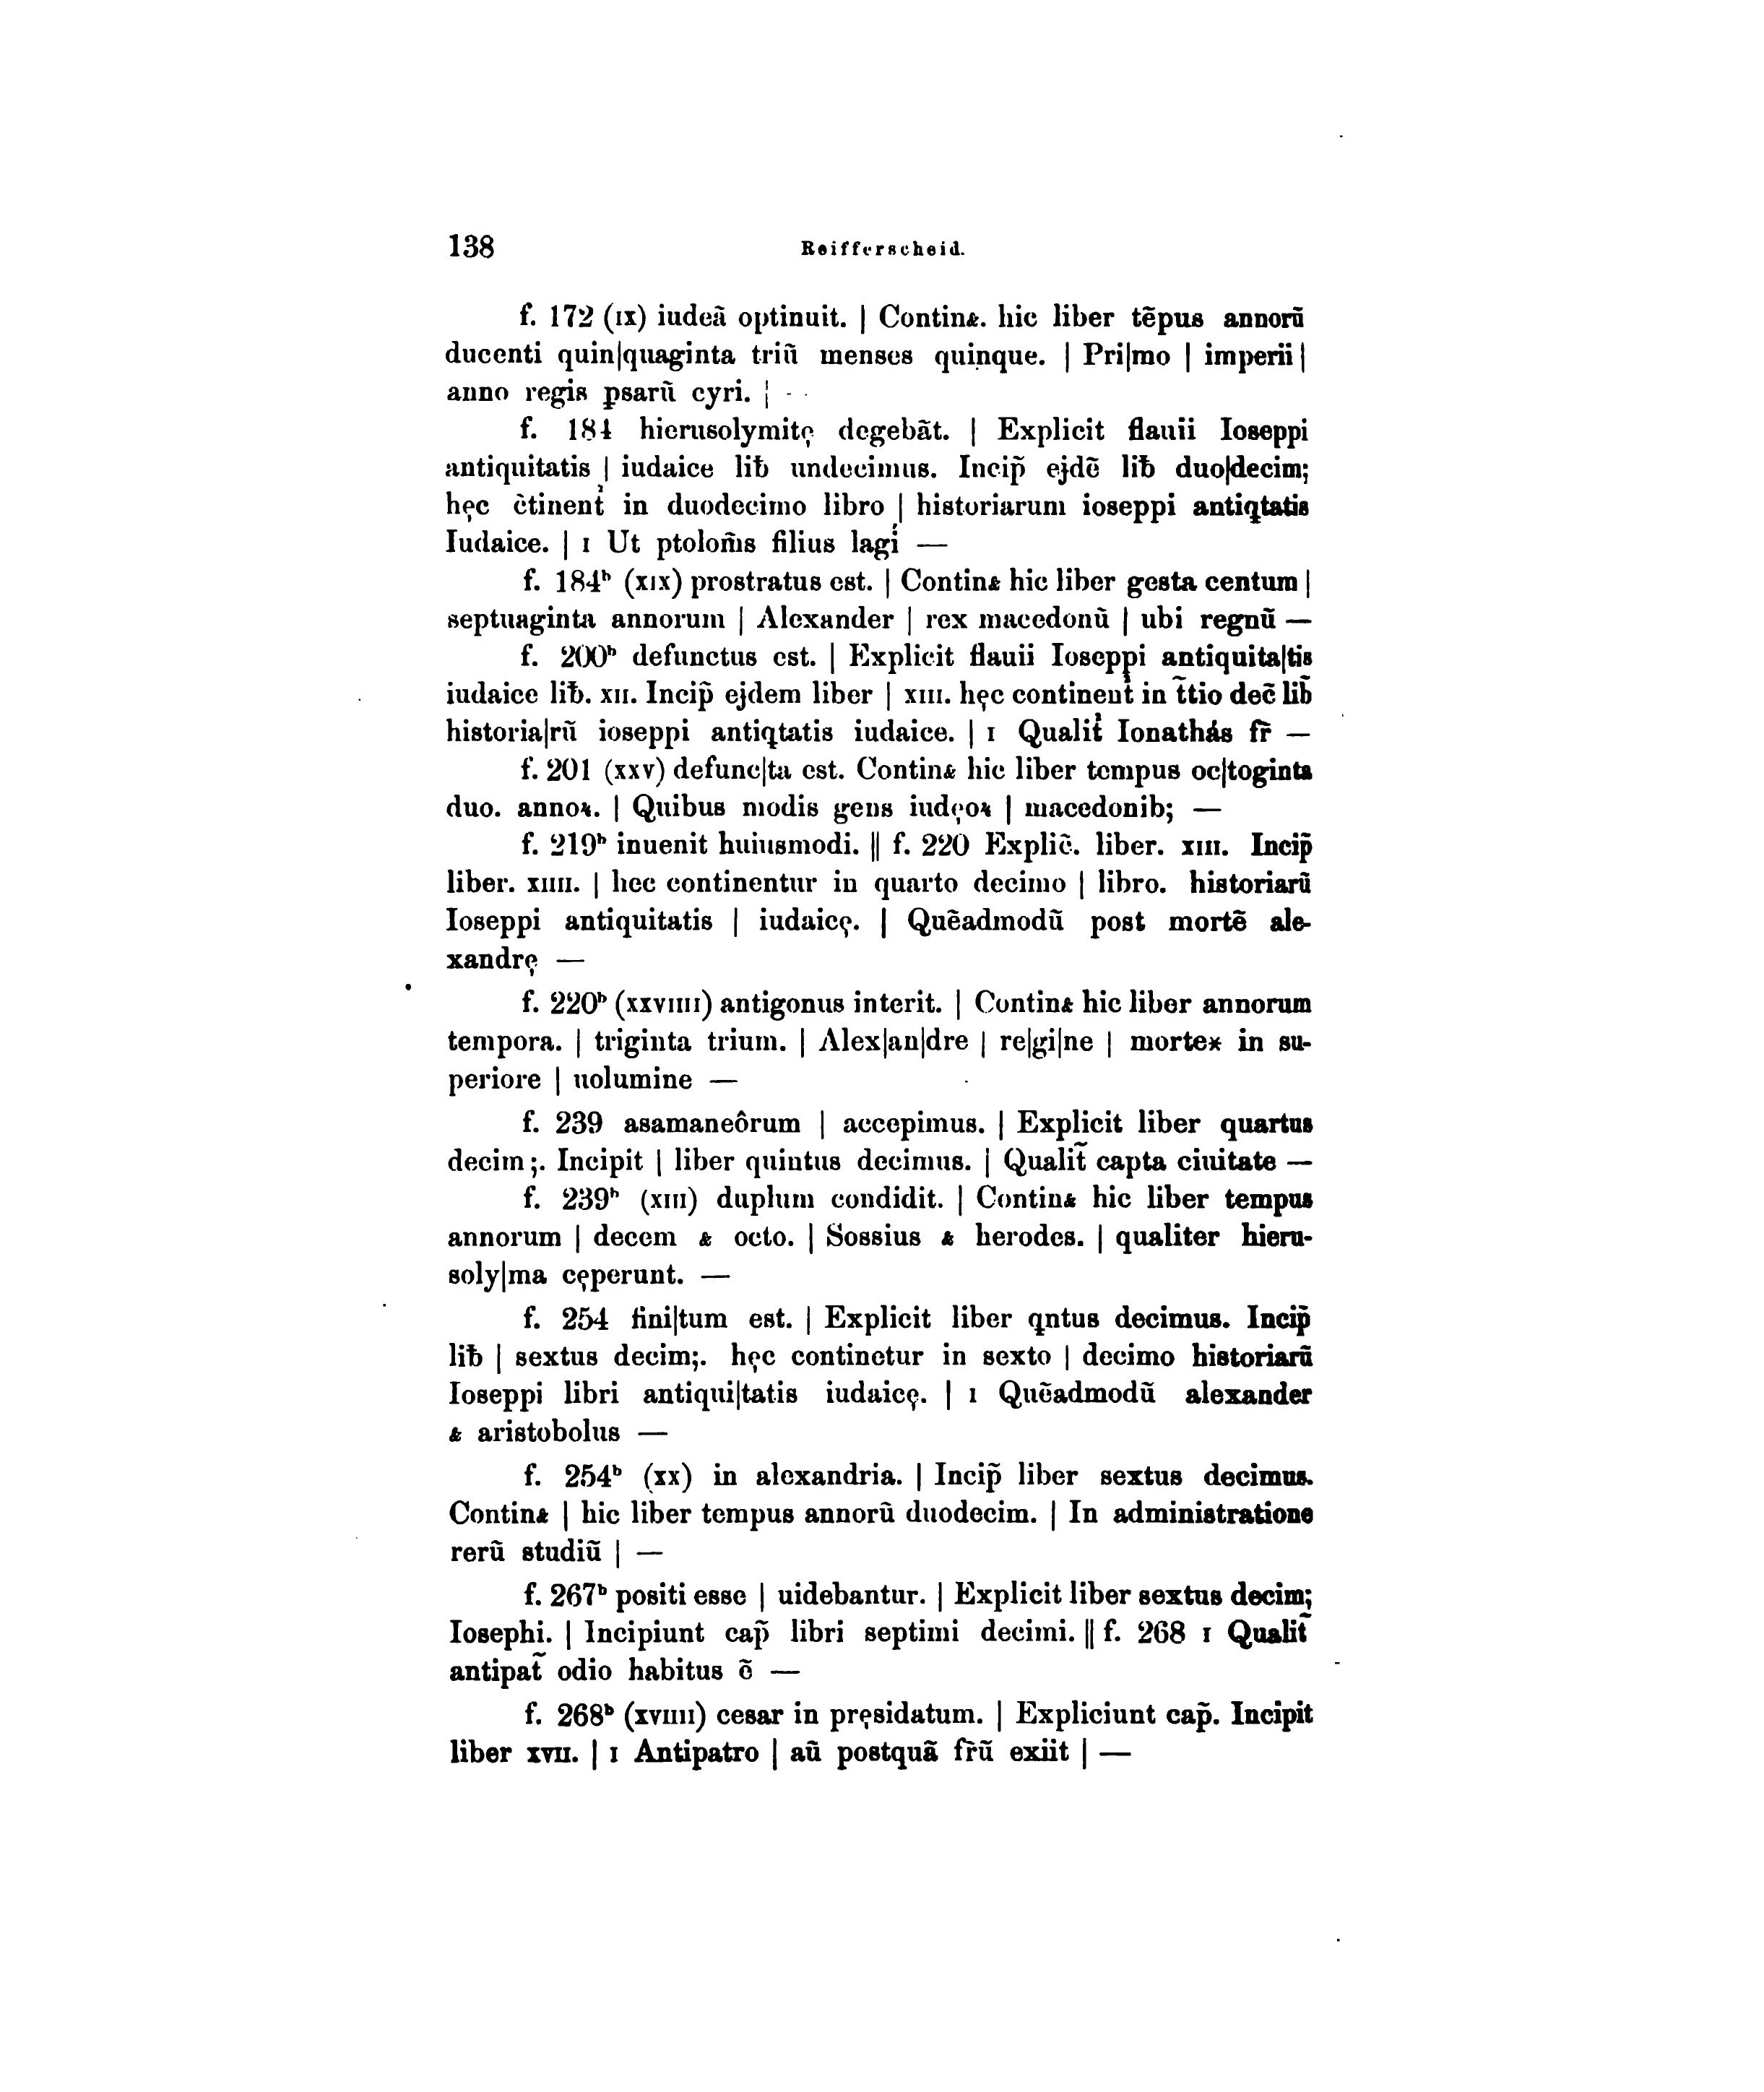 138 Reifferscheid.
f. 172 (ıx) iudeã optinuit. | Contin&. hic liber tẽpus annorũ
ducenti quin|quaginta triũ menses quinque. | Pri|mo | imperii |
anno regis ꝑsarũ cyri. | -
f. 184 hierusolymitę degebãt. | Explicit flauii Ioseppi
antiquitatis | iudaice liƀ undecimus. Incip̃ ejdẽ liƀ duo|decim;
hęc c̀tinent᾿ in duodecimo libro | historiarum ioseppi antiqtatis
Iudaice. | ı Ut ptolom̃s filius lagí —
f. 184ᵇ (xıx) prostratus est. | Contin& hic liber gesta centum |
septuaginta annorum | Alexander | rex macedonũ | ubi regnũ —
f. 200ᵇ defunctus est. | Explicit flauii Ioseppi antiquita|tis
iudaice liƀ. xıı. Incip̃ ejdem liber | xııı. hęc continent᾿ in t̃tio dec̃ lib̃
historia|rũ ioseppi antiqtatis iudaice. | ı Qualit᾿ Ionathás fr̃ —
f. 201 (xxv) defunc|ta est. Contin& hic liber tempus oc|toginta
duo. annoꝝ. | Quibus modis gens iudęoꝝ | macedonib; —
f. 219ᵇ inuenit huiusmodi. || f. 220 Explic̃. liber. xııı. Incip̃
liber. xıııı. | hec continentur in quarto decimo | libro. historiarũ
Ioseppi antiquitatis | iudaicę. | Quẽadmodũ post mortẽ ale-
xandrę —
f. 220ᵇ (xxvıııı) antigonus interit. | Contin& hic liber annorum
tempora. | triginta trium. | Alex|an|dre | re|gi|ne | morte* in su-
periore | uolumine —
f. 239 asamaneôrum | accepimus. | Explicit liber quartus
decim;. Incipit | liber quintus decimus. | Qualit̃ capta ciuitate —
f. 239ᵇ (xııı) duplum condidit. | Contin& hic liber tempus
annorum | decem & octo. | Sossius & herodes. | qualiter hieru-
soly|ma cęperunt. —
f. 254 fini|tum est. | Explicit liber qntus decimus. Incip̃
liƀ | sextus decim;. hęc continetur in sexto | decimo historiarũ
Ioseppi libri antiqui|tatis iudaicę. | ı Quẽadmodũ alexander
& aristobolus —
f. 254ᵇ (xx) in alexandria. | Incip̃ liber sextus decimus.
Contin& | hic liber tempus annorũ duodecim. | In administratione
rerũ studiũ | —
f. 267ᵇ positi esse | uidebantur. | Explicit liber sextus decim;
Iosephi. | Incipiunt cap̃ libri septimi decimi. || f. 268 ı Qualit̃
antipat̃ odio habitus õ —
f. 268ᵇ (xvıııı) cesar in pręsidatum. | Expliciunt cap̃. Incipit
liber xvıı. | ı Antipatro | aũ postquã fr̃ũ exiit | —